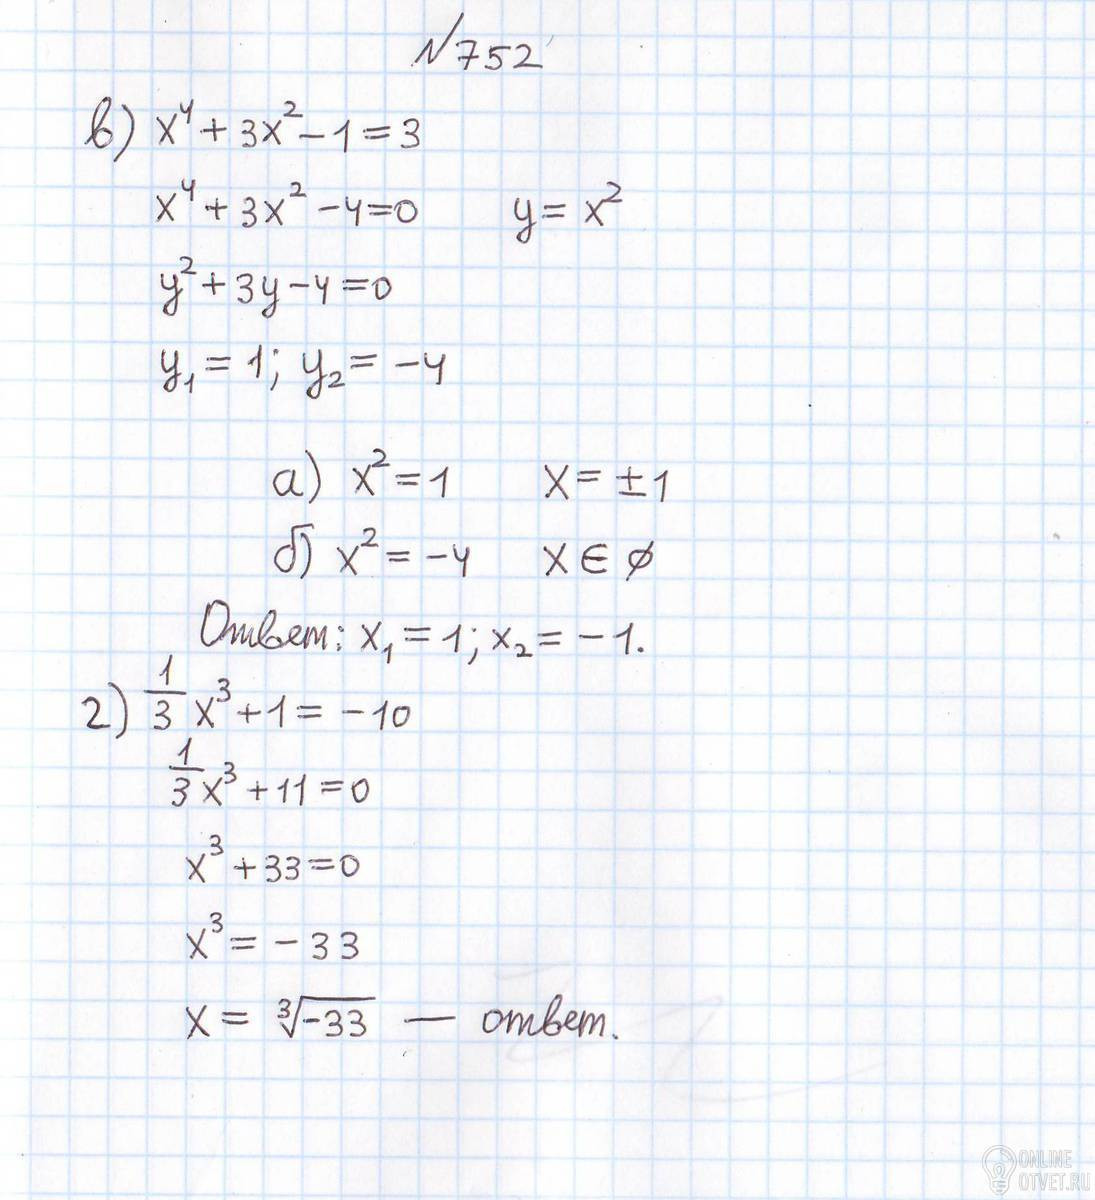 №752
в) x⁴ + 3x² − 1 = 3
x⁴ + 3x² − 4 = 0 y = x²
y² + 3y − 4 = 0
y₁ = 1; y₂ = −4
а) x² = 1 x = ±1
б) x² = −4 x ∈ ∅
Ответ: x₁ = 1; x₂ = −1.
г) 1/3 x³ + 1 = −10
1/3 x³ + 11 = 0
x³ + 33 = 0
x³ = −33
x = ∛−33 — ответ.
ONLINE
OTVET.RU